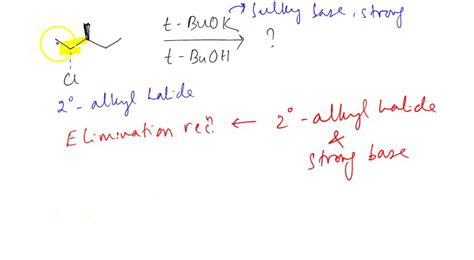 t-BuOK
Bulky base, strong
t-BuOH
?
Cl
2° - alkyl halide
Elimination recn. ← 2° - alkyl halide
&
strong base